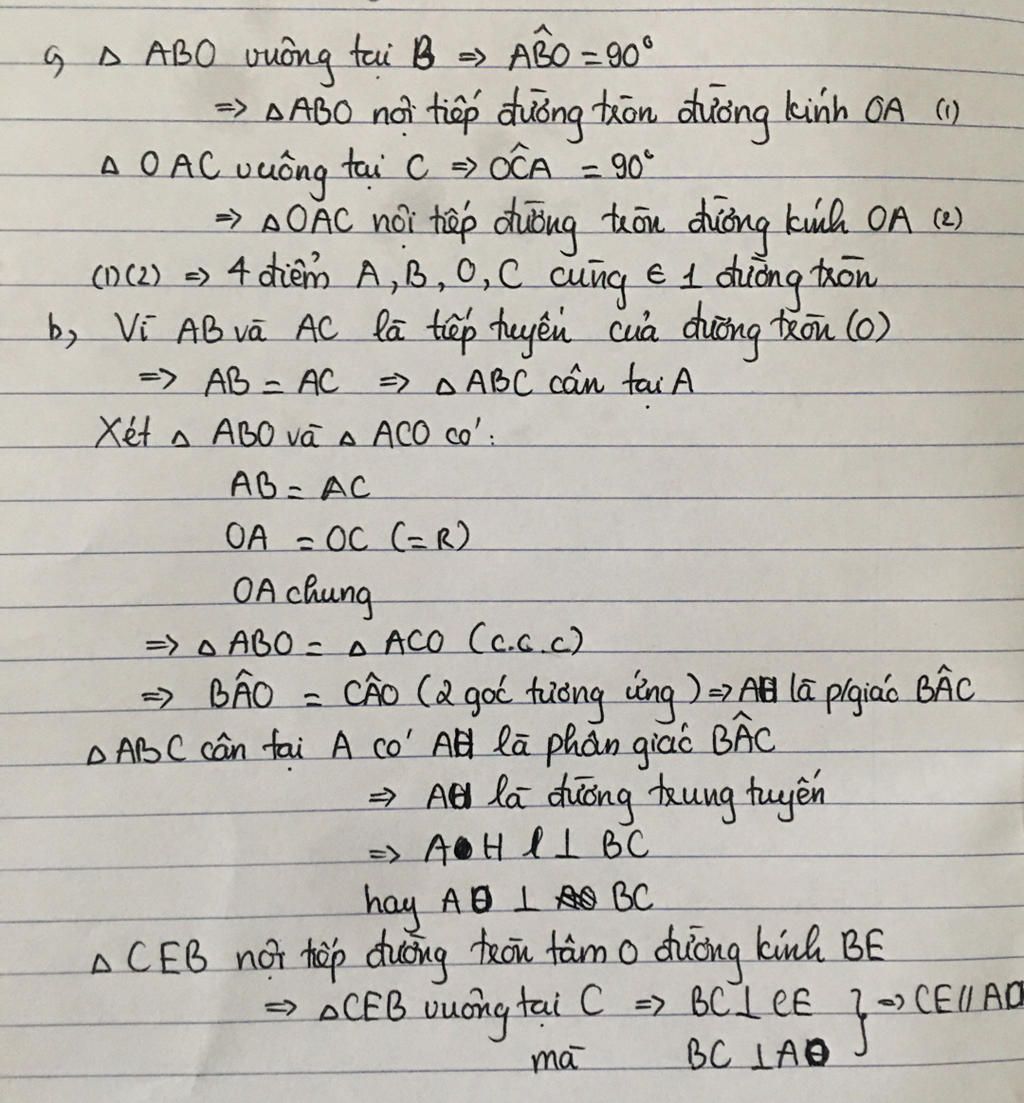 a, Δ ABO vuông tại B => AB̂O = 90°
=> ΔABO nội tiếp đường tròn đường kính OA (1)
Δ OAC vuông tại C => OĈA = 90°
=> ΔOAC nội tiếp đường tròn đường kính OA (2)
(1)(2) => 4 điểm A, B, O, C cùng ∈ 1 đường tròn
b, Vì AB và AC là tiếp tuyến của đường tròn (O)
=> AB = AC => Δ ABC cân tại A
Xét Δ ABO và Δ ACO có:
AB = AC
OA = OC (=R)
OA chung
=> Δ ABO = Δ ACO (c.c.c)
=> BÂO = CÂO (2 góc tương ứng) => AH là p/giác BÂC
Δ ABC cân tại A có AH là phân giác BÂC
=> AH là đường trung tuyến
=> AH ⊥ BC
hay AO ⊥ BC
Δ CEB nội tiếp đường tròn tâm O đường kính BE
=> ΔCEB vuông tại C => BC ⊥ CE } => CE // AO
mà BC ⊥ AO